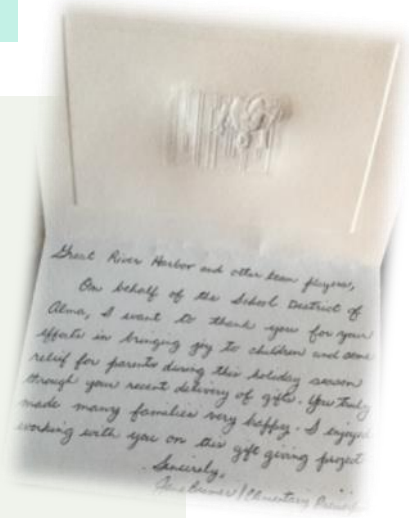 Great River Harbor and other team players,
On behalf of the School District of
Alma, I want to thank you for your
efforts in bringing joy to children and some
relief for parents during this holiday season
through your recent delivery of gifts. You truly
made many families very happy. I enjoyed
working with you on this gift giving project.
Sincerely,
/ Elementary